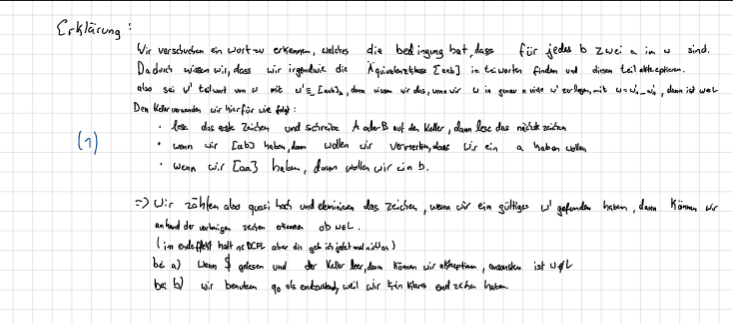 Erklärung:
Wir versuchen ein Wort zu erkennen, welches die bedingung hat, dass für jedes b zwei a in w sind.
Dadurch wissen wir, dass wir irgendwie die Äquivalenzklasse [aab] in teilworten finden und diesen teil akkzeptieren.
also sei w' teilwort von w mit w' ≡ [aab], dann wissen wir das, wenn wir w in genau n viele w' zerlegen, mit w = w'₁...w'ₙ, dann ist w∈L
Den Keller verwenden wir hierfür wie folgt:
• lese das erste Zeichen und schreibe A oder B auf den Keller, dann lese das nächste zeichen
• wenn wir [ab] haben, dann wollen wir vermerken, dass wir ein a haben wollen
(1)
• wenn wir [aa] haben, dann wollen wir ein b.
=> Wir zählen also quasi hoch und eliminieren das zeichen, wenn wir ein gültiges w' gefunden haben, dann können wir
anhand der zeichen erkennen ob w∈L.
(im endeffekt halt ne DCFL aber die geb ich jetzt mal)
bei a) Wenn $ gelesen und der Keller leer, dann können wir akkzeptieren, ansonsten ist w∉L
bei b) wir benutzen q₀ als endzustand, weil wir kein klares endzeichen haben